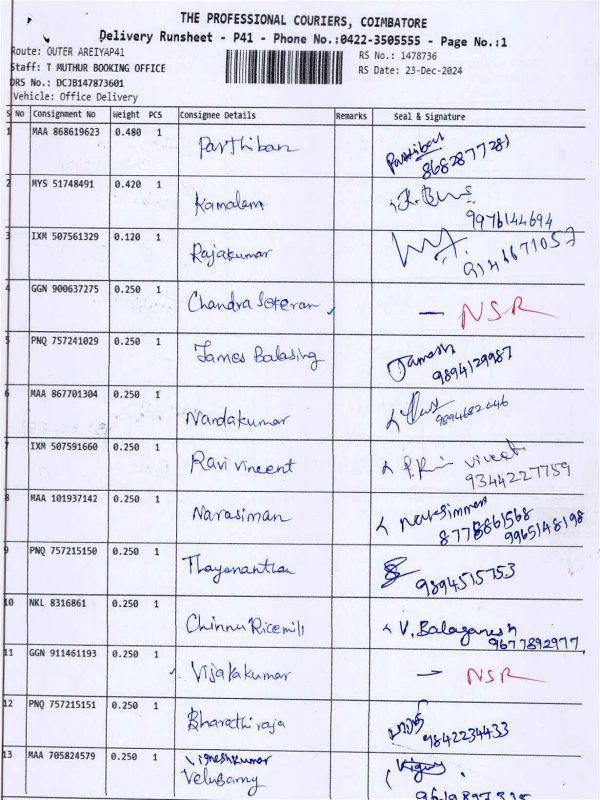 THE PROFESSIONAL COURIERS, COIMBATORE
Delivery Runsheet - P41 - Phone No.:0422-3505555 - Page No.:1
Route: OUTER AREIYAP41
RS No.: 1478736
Staff: T MUTHUR BOOKING OFFICE
RS Date: 23-Dec-2024
DRS No.: DCJB147873601
Vehicle: Office Delivery
S No Consignment No Weight PCS Consignee Details Remarks Seal & Signature
1 MAA 868619623 0.480 1 Parthiban Parthiban
8682877281
2 MYS 51748491 0.420 1 Kamalam
9976144694
3 IXM 507561329 0.120 1 Rajakumar
4 GGN 900637275 0.250 1 Chandra — NSR
5 PNQ 757241029 0.250 1 James Balasing James
9894129987
6 MAA 867701304 0.250 1 Nandakumar
7 IXM 507591660 0.250 1 Ravi vincent
9344227759
8 MAA 101937142 0.250 1 Narasiman
8778861568
9965148198
9 PNQ 757215150 0.250 1 Thayananthan
9894515753
10 NKL 8316861 0.250 1 Chinnu Ricemill V. Balaganesh
9677892977
11 GGN 911461193 0.250 1 Vijayakumar — NSR
12 PNQ 757215151 0.250 1 Bharathiraja
9842234433
13 MAA 705824579 0.250 1 Vigneshkumar
Velusamy